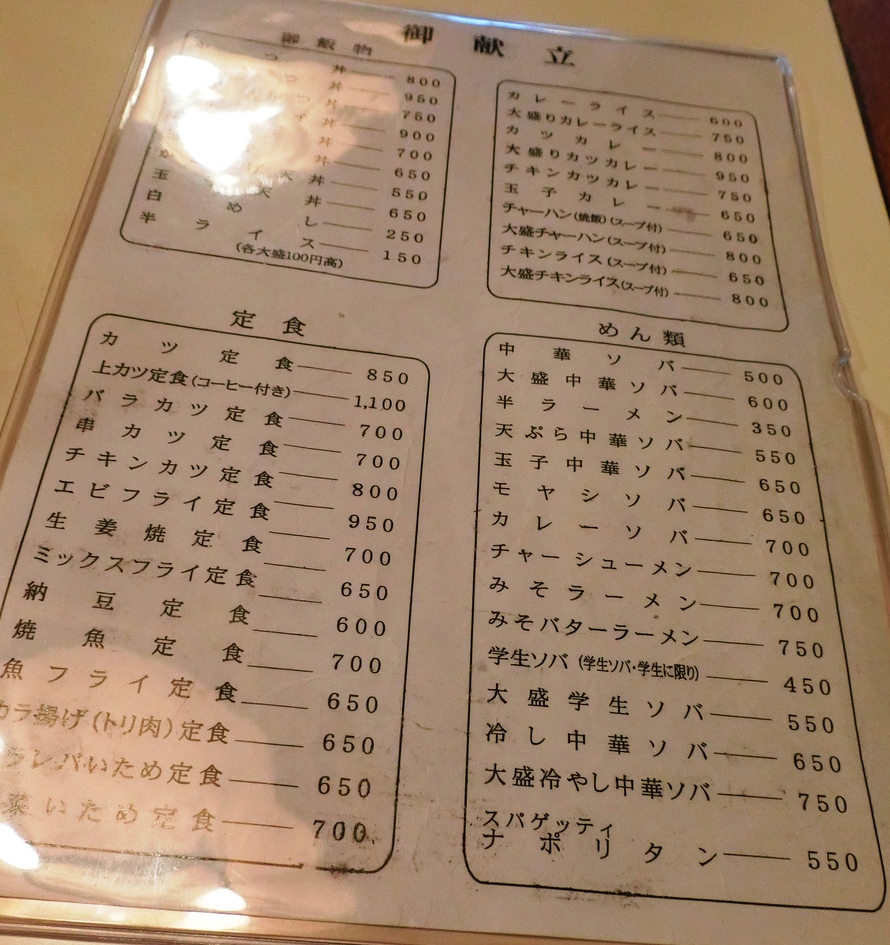 御献立
御飯物
丼 800
丼 950
丼 750
丼 900
丼 700
丼 650
丼 550
丼 650
白めし 250
半ライス 150
(各大盛100円高)
カレーライス 600
大盛りカレーライス 750
カツカレー 800
大盛りカツカレー 950
チキンカツカレー 750
玉子カレー 650
チャーハン(焼飯)(スープ付) 650
大盛チャーハン(スープ付) 800
チキンライス(スープ付) 650
大盛チキンライス(スープ付) 800
定食
カツ定食 850
上カツ定食(コーヒー付き) 1,100
バラカツ定食 700
串カツ定食 700
チキンカツ定食 800
エビフライ定食 950
生姜焼定食 700
ミックスフライ定食 650
納豆定食 600
焼魚定食 700
魚フライ定食 650
カラ揚げ(トリ肉)定食 650
いため定食 650
菜いため定食 700
めん類
中華ソバ 500
大盛中華ソバ 600
半ラーメン 350
天ぷら中華ソバ 550
玉子中華ソバ 650
モヤシソバ 650
カレーソバ 700
チャーシューメン 700
みそラーメン 700
みそバターラーメン 750
学生ソバ(学生ソバ・学生に限り) 450
大盛学生ソバ 550
冷し中華ソバ 650
大盛冷やし中華ソバ 750
スパゲッティ
ナポリタン 550